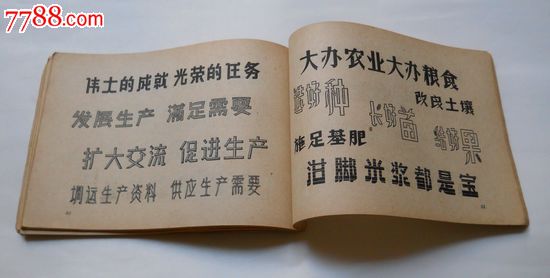 7788.com
伟大的成就 光荣的任务
发展生产 滿足需要
扩大交流 促进生产
调运生产资料 供应生产需要
大办农业大办粮食
选好种
改良土壤
长好苗
结好果
施足基肥
泔脚米浆都是宝